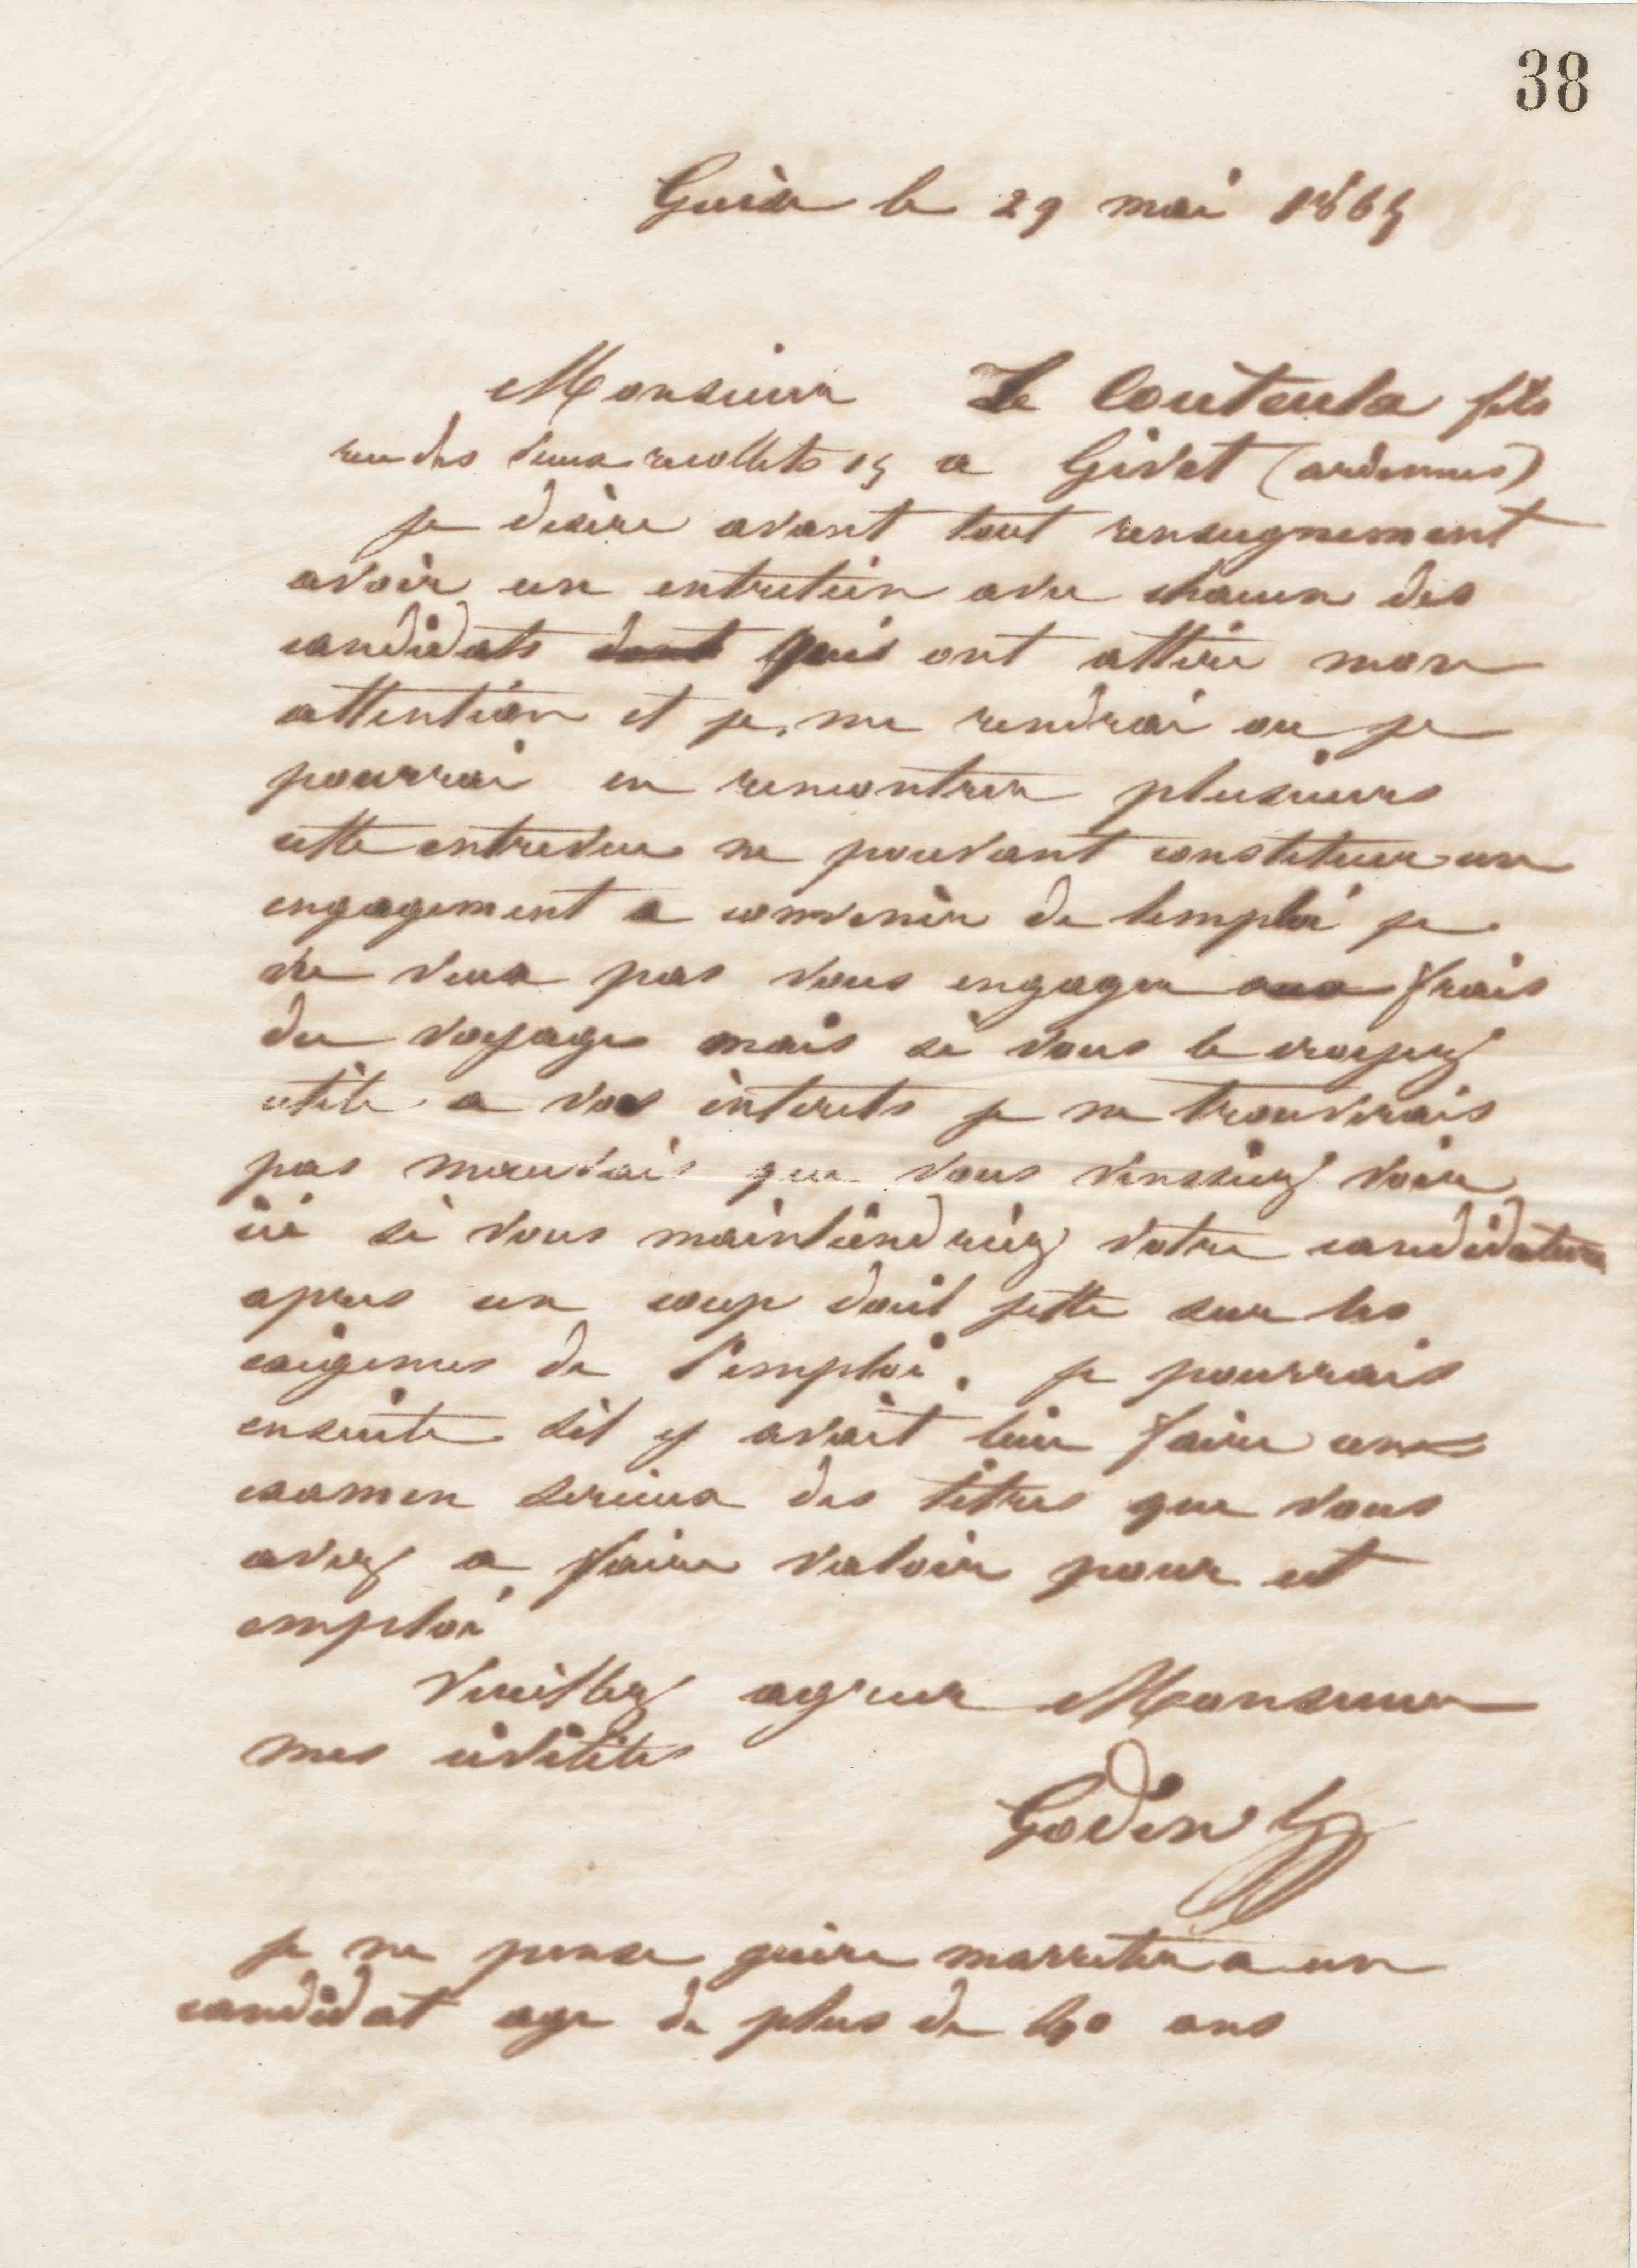 38
Guise le 29 mai 1865
Monsieur Le Couteula fils
rue des deux recollets 15 a Givet (ardennes)
je desire avant tout renseignement
avoir un entretien avec chacun des
candidats dont qui ont attire mon
attention et je me rendrai ou je
pourrai en rencontrer plusieurs
cette entrevue ne pouvant constituer un
engagement a convenir de lemploi je
ne veux pas vous engager aux frais
du voyage mais si vous le croyez
utile a vos interets je ne trouverais
pas mauvais que vous vinssiez voir
ici si vous maintiendriez votre candidature
apres un coup doeil jette sur les
exigences de l'emploi. je pourrais
ensuite sil y avait lieu faire un
examen serieux des titres que vous
avez a faire valoir pour cet
emploi
Veuillez agreer Monsieur
mes civilites
Godin
je ne pense guere marreter a un
candidat age de plus de 40 ans